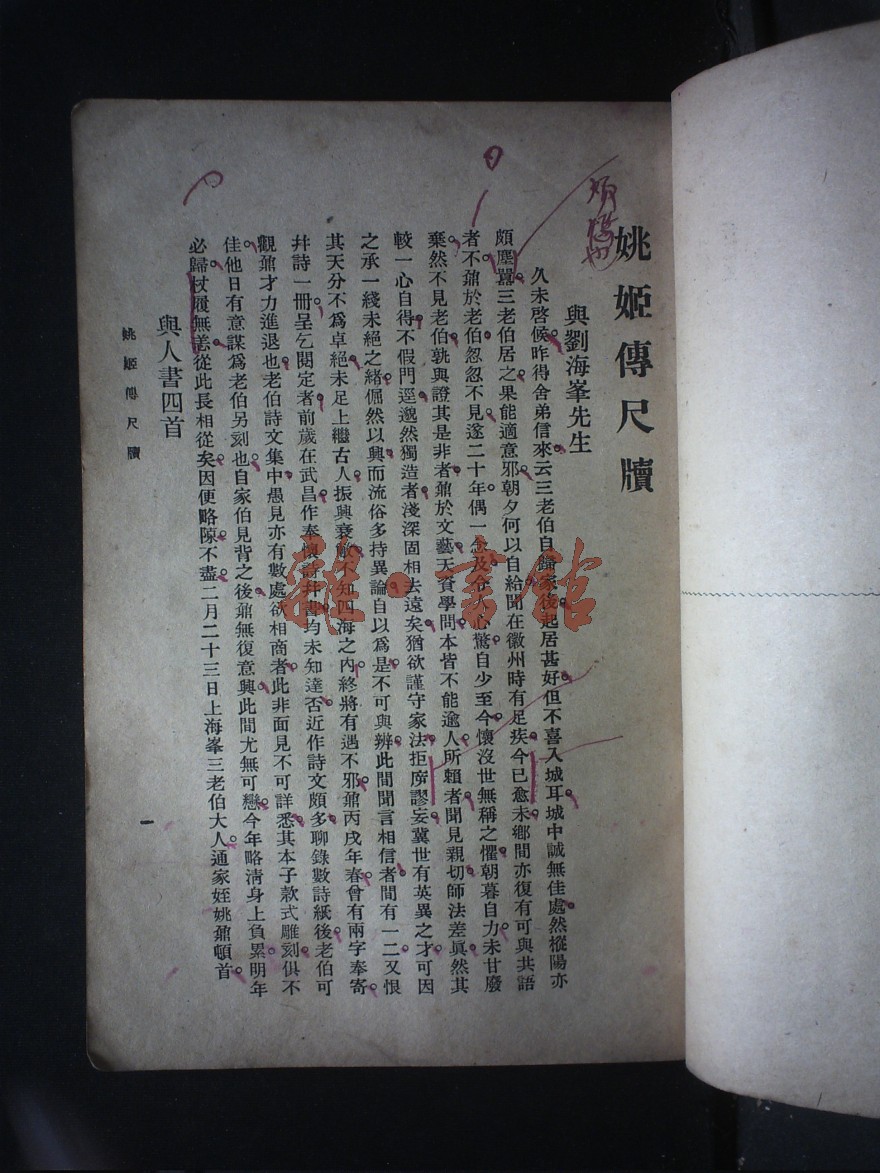 姚姬傳尺牘
與劉海峯先生
久未啓候昨得舍弟信來云三老伯自歸家後起居甚好但不喜入城耳城中誠無佳處然樅陽亦
頗塵囂三老伯居之果能適意邪朝夕何以自給聞在徽州時有足疾今已愈未鄉間亦復有可與共語
者不鼐於老伯忽忽不見遂二十年偶一念及令人心驚自少至今懷沒世無稱之懼朝暮自力未甘廢
棄然不見老伯孰與證其是非者鼐於文藝天資學問本皆不能逾人所賴者聞見親切師法差眞然其
較一心自得不假門逕邈然獨造者淺深固相去遠矣猶欲謹守家法拒斥謬妄冀世有英異之才可因
之承一綫未絕之緒倔然以興而流俗多持異論自以爲是不可與辨此間聞言相信者間有一二又恨
其天分不爲卓絕未足上繼古人振興衰敝不知四海之內終將有遇不邪鼐丙戌年春曾有兩字奉寄
幷詩一冊呈乞閱定者前歲在武昌作奉懷詩幷書均未知達否近作詩文頗多聊錄數詩紙後老伯可
觀鼐才力進退也老伯詩文集中愚見亦有數處欲相商者此非面見不可詳悉其本子款式雕刻俱不
佳他日有意謀爲老伯另刻也自家伯見背之後鼐無復意興此間尤無可戀今年略淸身上負累明年
必歸杖履無恙從此長相從矣因便略陳不盡二月二十三日上海峯三老伯大人通家姪姚鼐頓首
與人書四首
姚姬傳尺牘
一
雜·書館